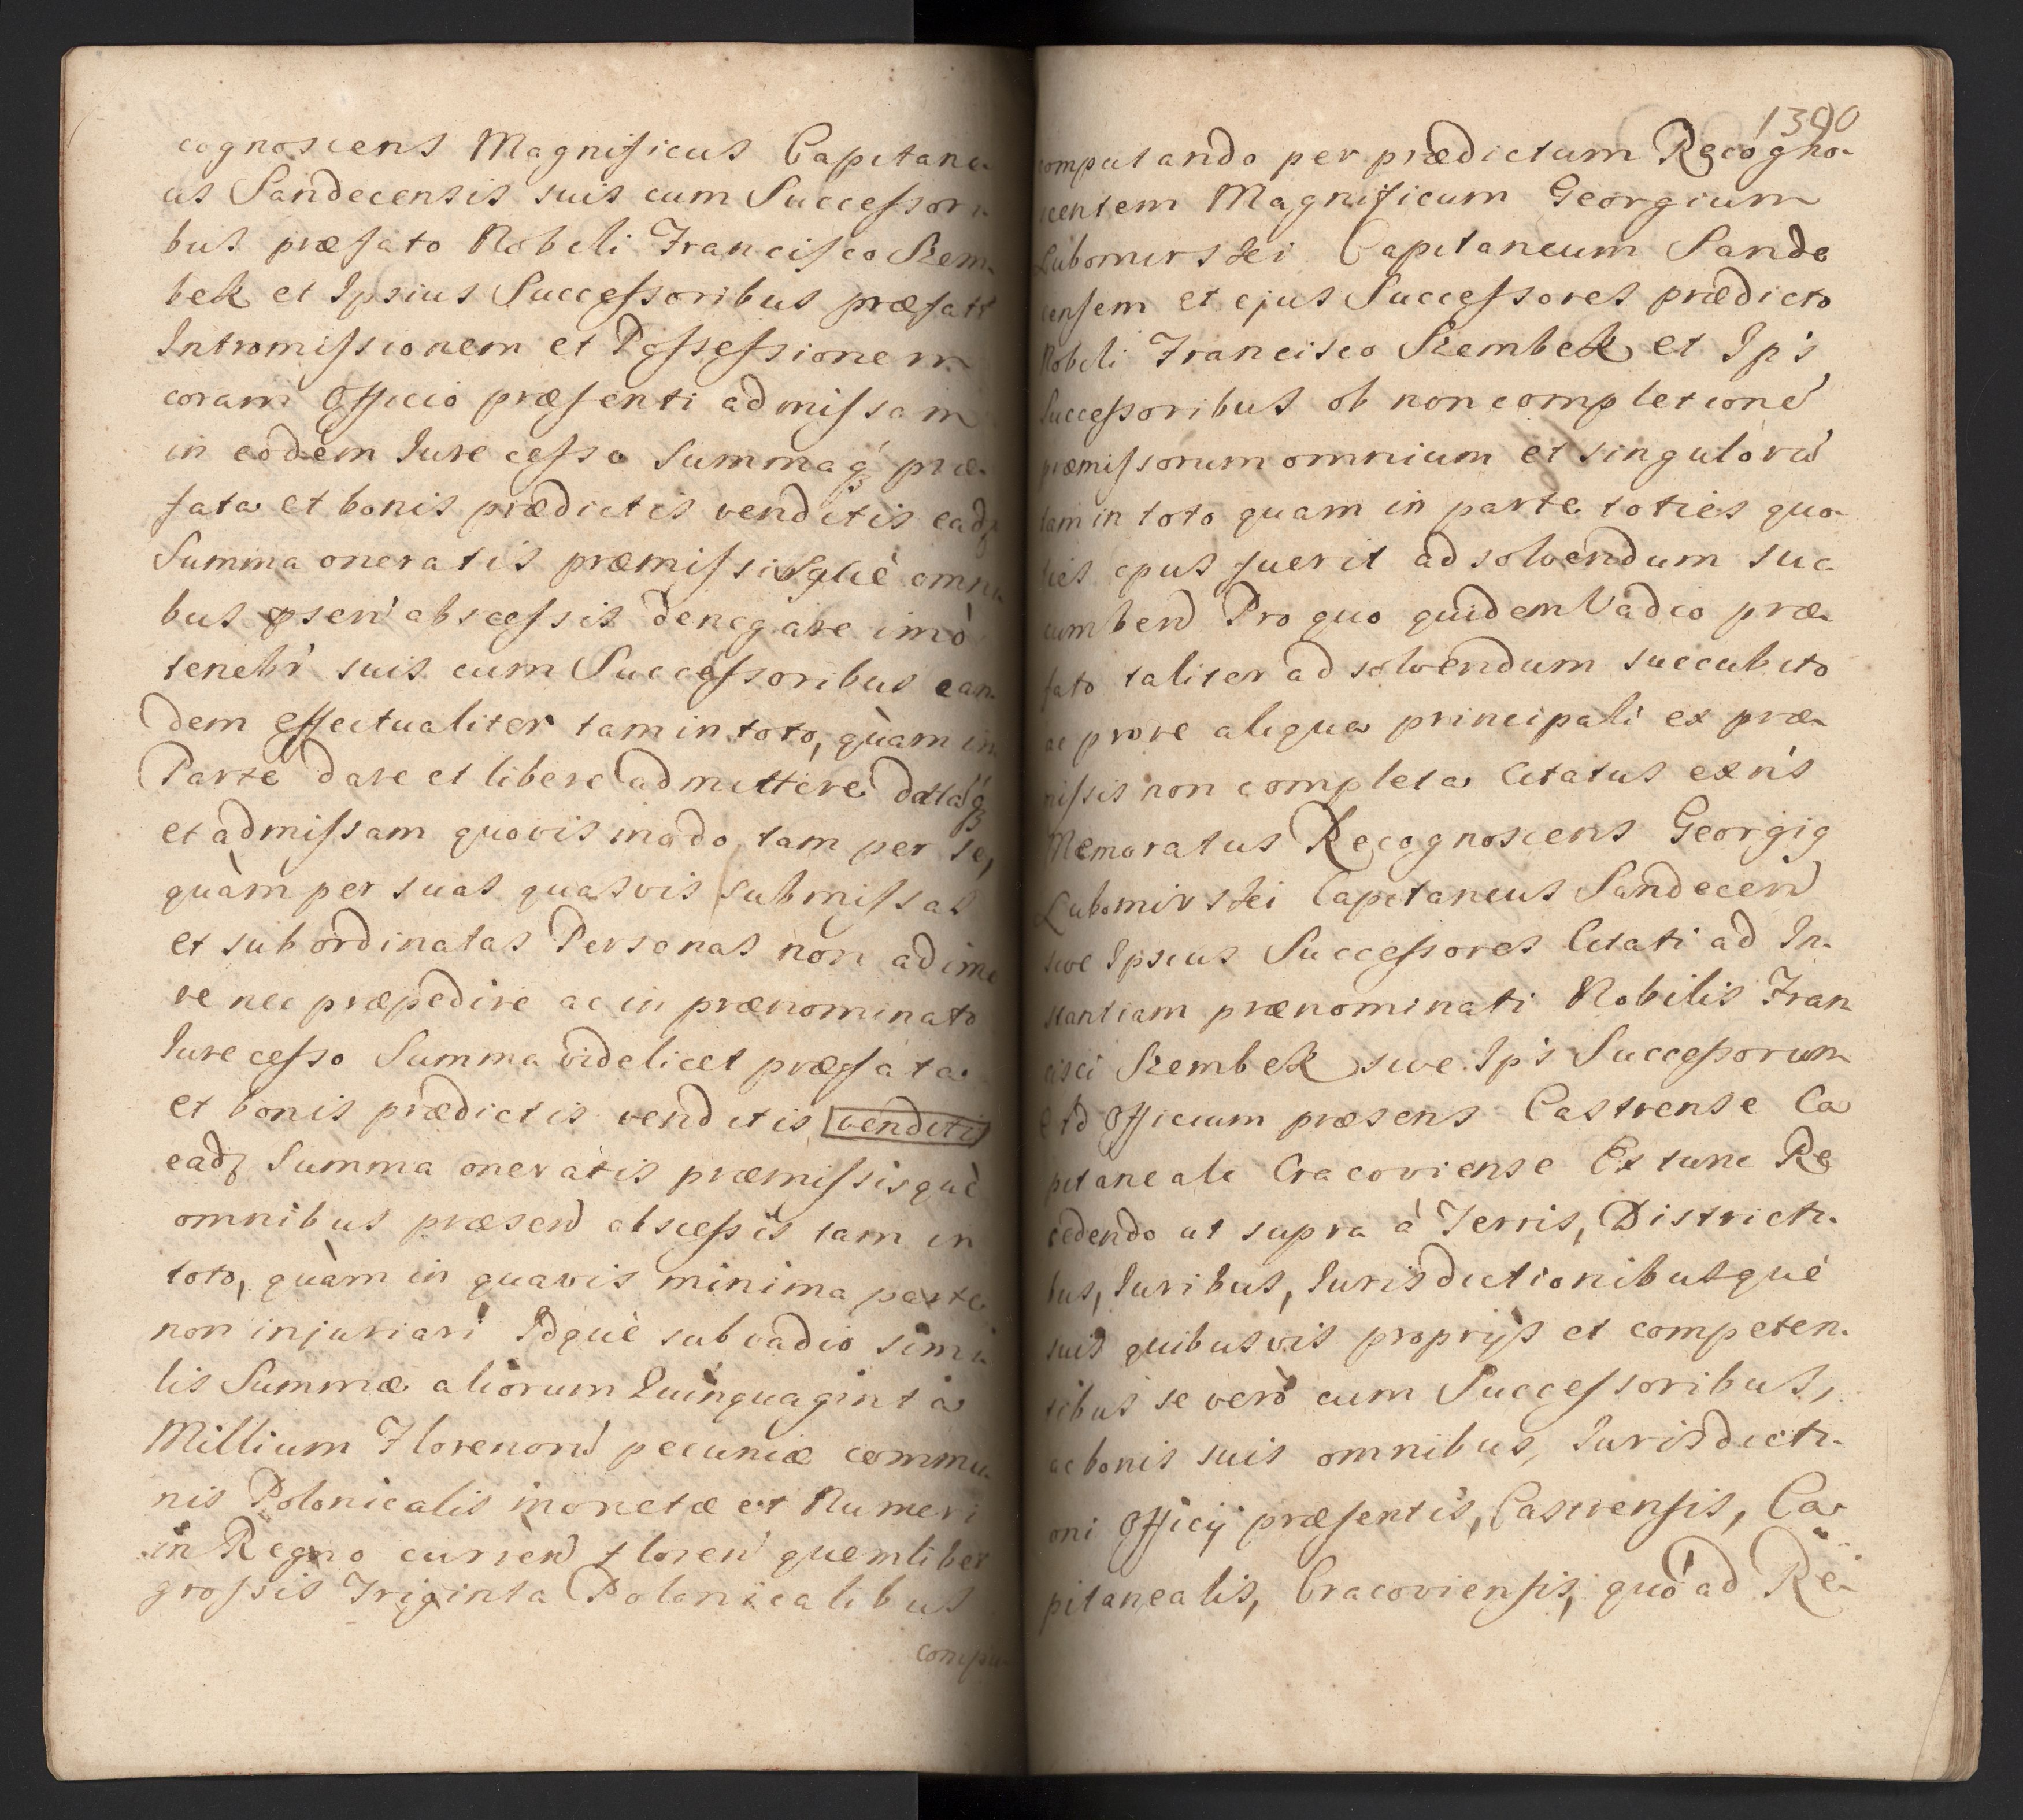 cognoscens Magnificus Capitane
us Sandecensis suis cum Successori
bus præfato Nobili Francisco Szem
bek et Ipsius Successoribus præfatā
Intromissionem et Possessionem
coram Officio præsenti admissam
in eodem Iure cesso Summaq́ præ
fata et bonis prædictis venditis eadq
Summa oneratis præmissisquè omni
bus præsen abscessis denegare imò
tenebr̀ suis cum Successoribus ean
dem effectualiter tam in toto, quàm in
Parte dare et libere admittere datāq́
et admissam quovis modo tam per se,
quàm per suas quasvis submissas
et subordinatas Personas non adime
re nec præpedire ac in prænominato
Iure cesso Summa videlicet præfata
et bonis prædictis venditis venditis
eadq Summa oneratis præmissisquè
omnibus præsen abscessis tam in
toto, quàm in quavis minima parte
non injuriari Idquè sub vadio simi
lis Summæ aliorum Quinquaginta
Millium Florenorū pecuniæ commu
nis Polonicalis monetæ et Numeri
in Regno curren floren quemlibet
grossis Triginta Polonicalibus
compu
1300
computando per prædictum Recogno
scentem Magnificum Georgium
Lubomirski Capitaneum Sande
censem et ejus Successores prædicto
Nobili Francisco Szembek et Ip's
Successoribus ob non completionē
præmissorum omnium et singulorū
tam in toto quam in parte toties quo
ties opus fuerit ad solvendum suc
cumben Pro quo quidem Vadio præ
fato taliter ad solvendum succubito
ac pro re aliqua principali ex præ
missis non completa Citatus ex n's
Memoratus Recognoscens Georgig
Lubomirski Capitaneus Sandecen
sive Ipsius Successores Citati ad In
stantiam prænominati Nobilis Fran
cisci Szembek sive Ip's Successorum
Ad Officium præsens Castrense Ca
pitaneale Cracoviense Ex tunc Re
cedendo ut supra à Terris, Districti
bus, Iuribus, Iurisdictionibusquè
suis quibusvis proprijs et competen
tibus se verò cum Successoribus,
ac bonis suis omnibus, Iurisdicti
oni Officij præsentis, Castrensis, Ca
pitanealis, Cracoviensis, quò ad Re